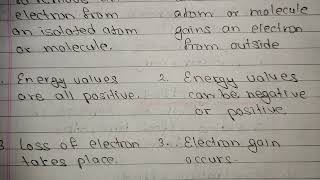 electron from
an isolated atom
or molecule.
atom or molecule
gains an electron
from outside
1. Energy values
are all positive.
2. Energy values
can be negative
or positive
3 Loss of electron
takes place.
3. Electron gain
occurs.